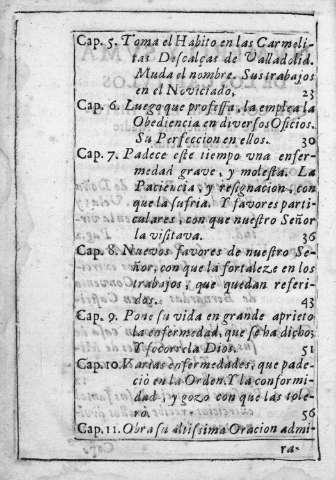 Cap. 5. Toma el Habito en las Carmeli-
tas Descalças de Valladolid.
Muda el nombre. Sus trabajos
en el Noviciado. 23
Cap. 6. Luego que professa, la emplea la
Obediencia en diversos Oficios.
Su Perfeccion en ellos. 30
Cap. 7. Padece este tiempo vna enfer-
medad grave, y molesta. La
Paciencia, y resignacion, con
que la sufria. Y favores parti-
culares, con que nuestro Señor
la visitava. 36
Cap. 8. Nuevos favores de nuestro Se-
ñor, con que la fortaleze en los
trabajos, que quedan referi-
dos. 43
Cap. 9. Pone su vida en grande aprieto
la enfermedad, que se ha dicho;
Y socorrela Dios. 51
Cap. 10. Varias enfermedades, que pade-
ciò en la Orden. Y la conformi-
dad, y gozo con que las tole-
rò. 56
Cap. 11. Obra su altissima Oracion admi-
ra-